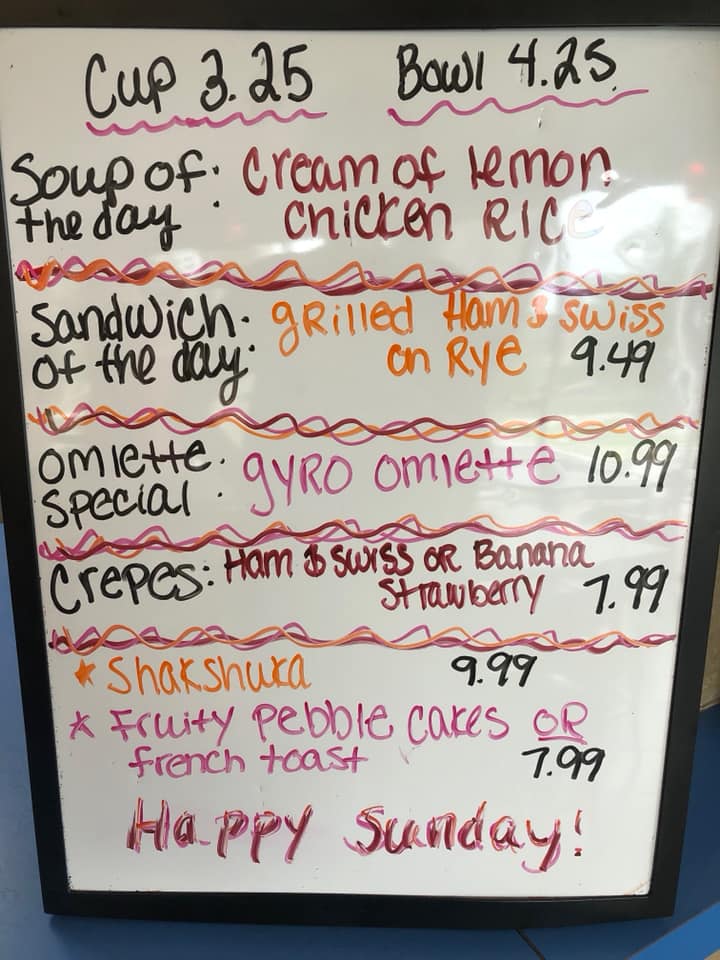 Cup 3.25 Bowl 4.25
Soup of: Cream of lemon
the day : Chicken Rice
Sandwich: grilled Ham & Swiss
of the day: on Rye 9.49
Omlette: gyro omlette 10.99
Special :
Crepes: Ham & Swiss OR Banana
Strawberry 7.99
* Shakshuka 9.99
* Fruity Pebble Cakes OR
french toast 7.99
Happy Sunday!